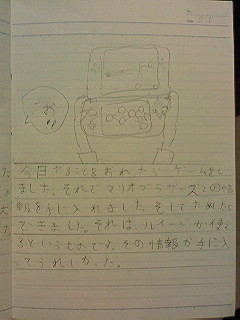 お
わり
今日やることをおわ
ました。それでマリオブラザーズ2の情
報を手に入れました。そしてためした
できました。それは、ルイージが使え
るというものです。その情報が手に入
ってうれしかった。